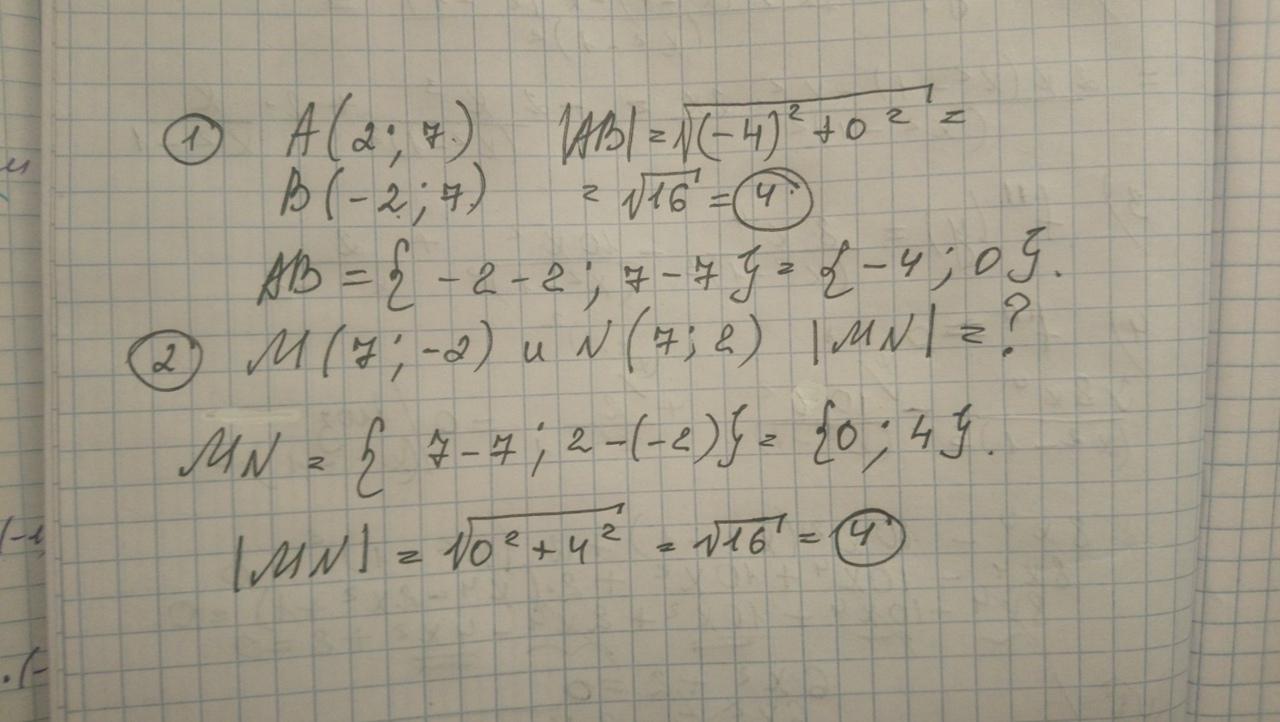 1 A(2; 7) |AB| = √(-4)² + 0² =
B(-2; 7) = √16 = 4
AB = { -2-2; 7-7} = {-4; 0}.
2 M(7; -2) и N(7; 2) |MN| = ?
MN = { 7-7; 2-(-2)} = {0; 4}.
|MN| = √0² + 4² = √16 = 4